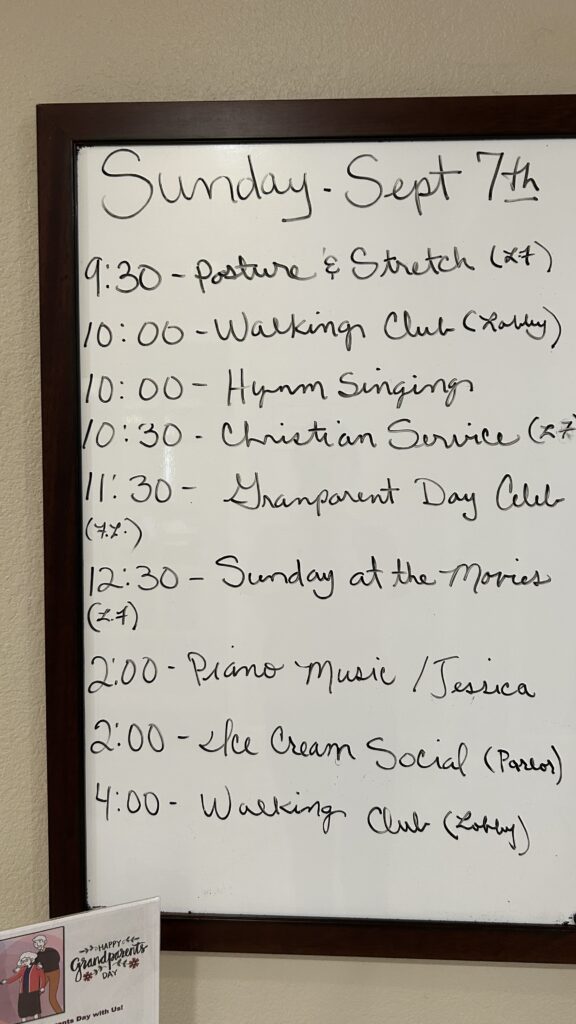 Sunday - Sept 7th
9:30 - Posture & Stretch (LF)
10:00 - Walking Club (Lobby)
10:00 - Hymn Singing
10:30 - Christian Service (LF
11:30 - Granparent Day Celeb
(F.L.)
12:30 - Sunday at the Movies
(L.F)
2:00 - Piano Music / Jessica
2:00 - Ice Cream Social (Parlor)
4:00 - Walking Club (Lobby)
HAPPY
Grandparents
DAY
ents Day with Us!